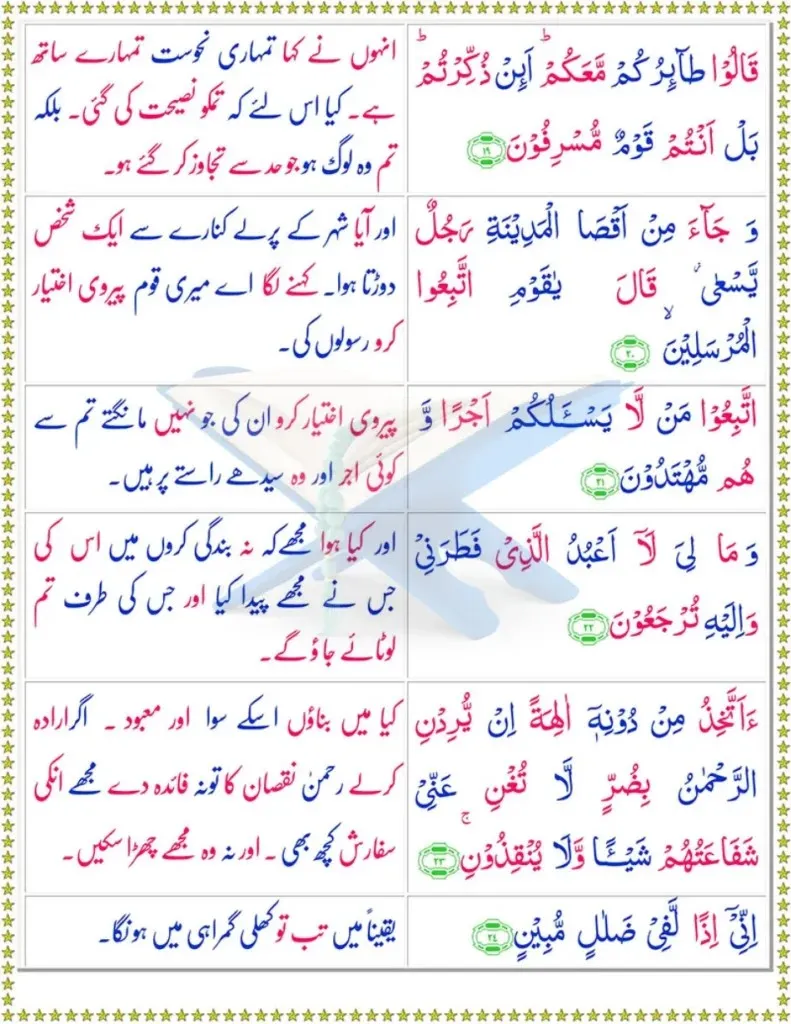 قَالُوْا طَآئِرُكُمْ مَّعَكُمْ ؕ اَئِنْ ذُكِّرْتُمْ ؕ
بَلْ اَنْتُمْ قَوْمٌ مُّسْرِفُوْنَ ۱۹
انہوں نے کہا تمہاری نحوست تمہارے ساتھ
ہے۔ کیا اس لئے کہ تمکو نصیحت کی گئی۔ بلکہ
تم وہ لوگ ہو جو حد سے تجاوز کر گئے ہو۔
وَ جَآءَ مِنْ اَقْصَا الْمَدِيْنَةِ رَجُلٌ
يَّسْعٰى ۫ قَالَ يٰقَوْمِ اتَّبِعُوا
الْمُرْسَلِيْنَ ۙ ۲۰
اور آیا شہر کے پرلے کنارے سے ایک شخص
دوڑتا ہوا۔ کہنے لگا اے میری قوم پیروی اختیار
کرو رسولوں کی۔
اتَّبِعُوْا مَنْ لَّا يَسْـَٔلُكُمْ اَجْرًا وَّ
هُم مُّهْتَدُوْنَ ۲۱
پیروی اختیار کرو ان کی جو نہیں مانگتے تم سے
کوئی اجر اور وہ سیدھے راستے پر ہیں۔
وَ مَا لِىَ لَاۤ اَعْبُدُ الَّذِىْ فَطَرَنِىْ
وَاِلَيْهِ تُرْجَعُوْنَ ۲۲
اور کیا ہوا مجھے کہ نہ بندگی کروں میں اس کی
جس نے مجھے پیدا کیا اور جس کی طرف تم
لوٹائے جاؤ گے۔
ءَاَتَّخِذُ مِنْ دُوْنِهٖۤ اٰلِهَةً اِنْ يُّرِدْنِ
الرَّحْمٰنُ بِضُرٍّ لَّا تُغْنِ عَنِّىْ
شَفَاعَتُهُمْ شَيْـًٔا وَّلَا يُنْقِذُوْنِ ۚ ۲۳
کیا میں بناؤں اسکے سوا اور معبود ۔ اگر ارادہ
کرلے رحمٰن نقصان کا تو نہ فائدہ دے مجھے انکی
سفارش کچھ بھی ۔ اور نہ وہ مجھے چھڑا سکیں۔
اِنِّىْۤ اِذًا لَّفِىْ ضَلٰلٍ مُّبِيْنٍ ۲۴
یقیناً میں تب تو کھلی گمراہی میں ہونگا۔